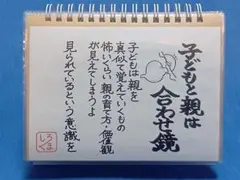 子どもと親は
合わせ鏡
子どもは親を
真似て覚えていくもの
怖いくらい親の育て方・価値観
が見えてしまうよ
見られているという意識を